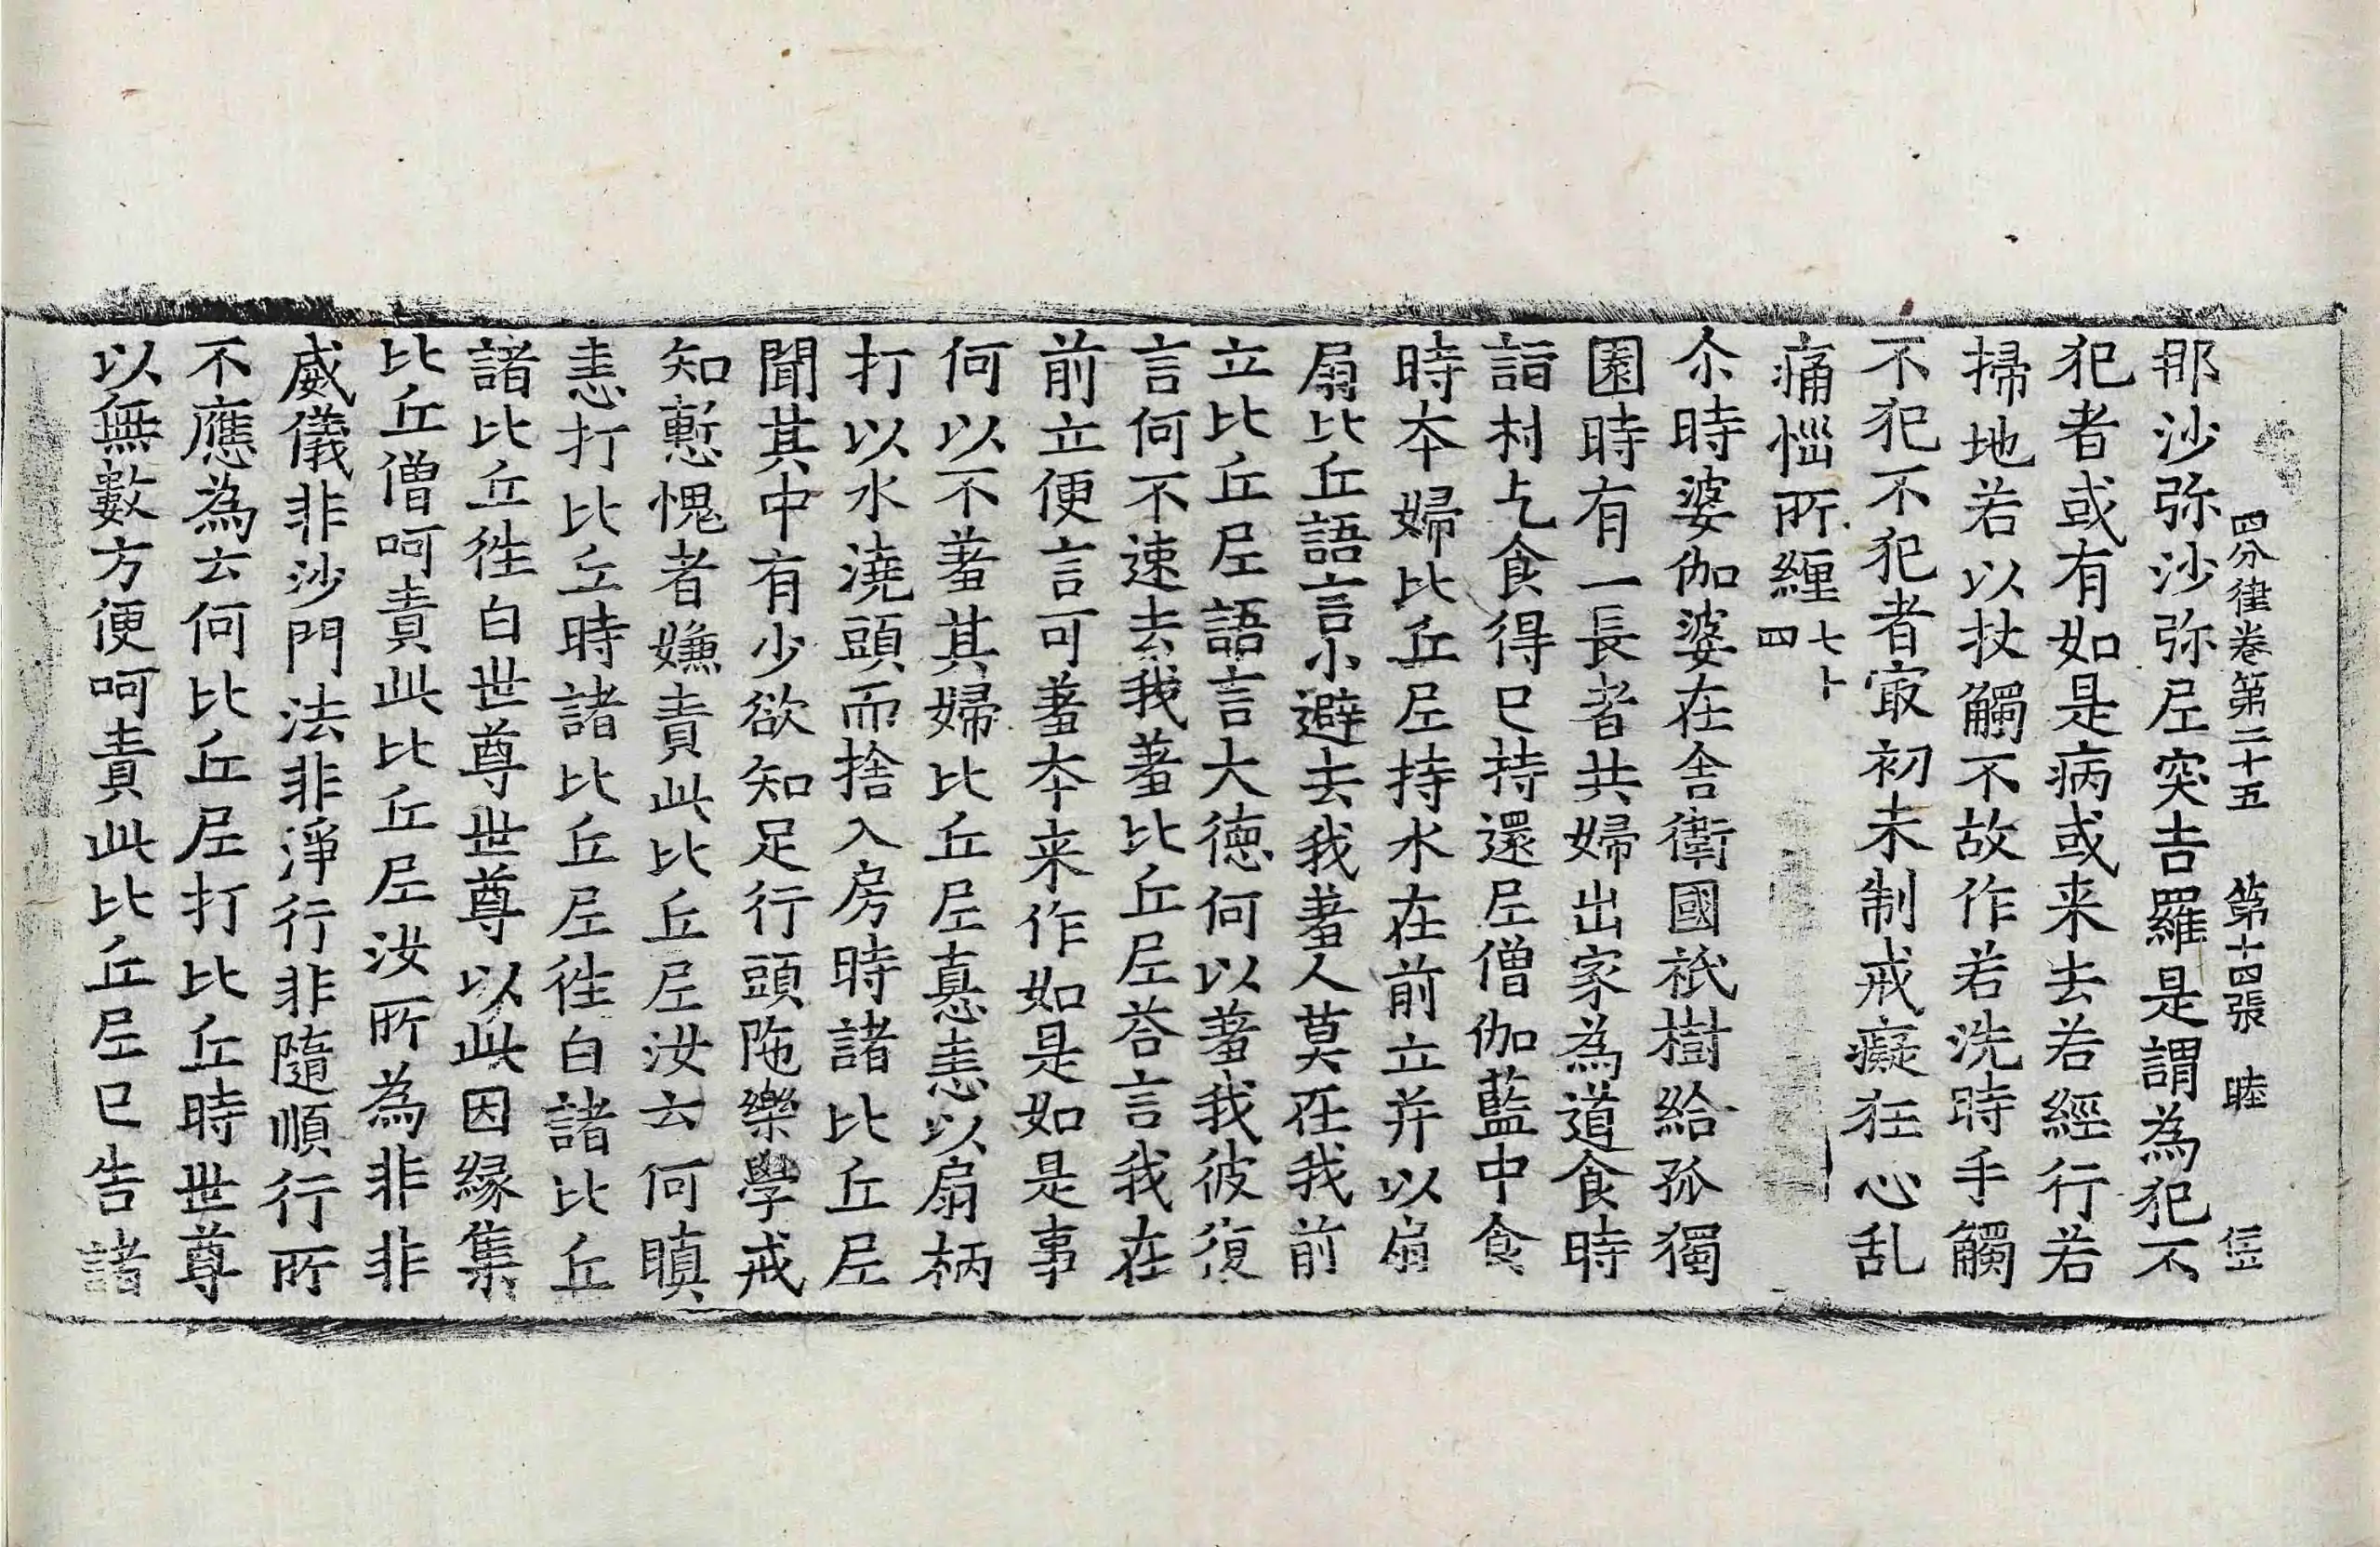 四分律卷第二十五 第十四張 睦
那沙弥沙弥尼突吉羅是謂為犯不
犯者或有如是病或来去若經行若
掃地若以杖觸不故作若洗時手觸
不犯不犯者㝡初未制戒癡狂心乱
痛惱所纏七十四
尒時婆伽婆在舍衛國祇樹給孤獨
園時有一長者共婦出家為道食時
詣村乞食得已持還尼僧伽藍中食
時夲婦比丘尼持水在前立并以扇
扇比丘語言小避去我羞人莫在我前
立比丘尼語言大德何以羞我彼復
言何不速去我羞比丘尼荅言我在
前立便言可羞夲来作如是如是事
何以不羞其婦比丘尼瞋恚以扇柄
打以水澆頭而捨入房時諸比丘尼
聞其中有少欲知足行頭陁樂學戒
知慙愧者嫌責此比丘尼汝云何瞋
恚打比丘時諸比丘尼徃白諸比丘
諸比丘徃白世尊世尊以此因緣集
比丘僧呵責此比丘尼汝所為非非
威儀非沙門法非淨行非隨順行所
不應為云何比丘尼打比丘時世尊
以無數方便呵責此比丘尼已告諸